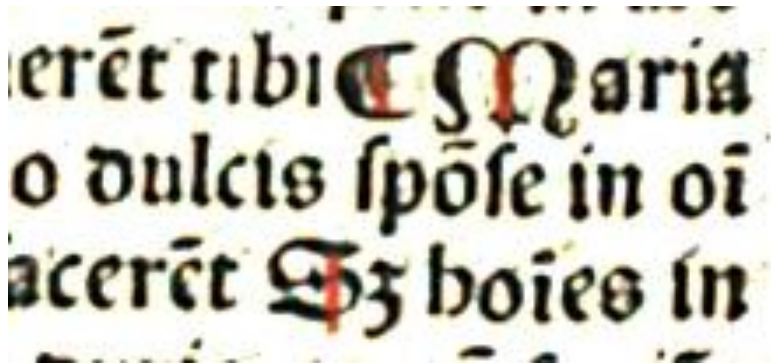 erēt tibi ¶ Maria
o dulcis ſpōſe in oī
acerēt Sꝫ hoīes in